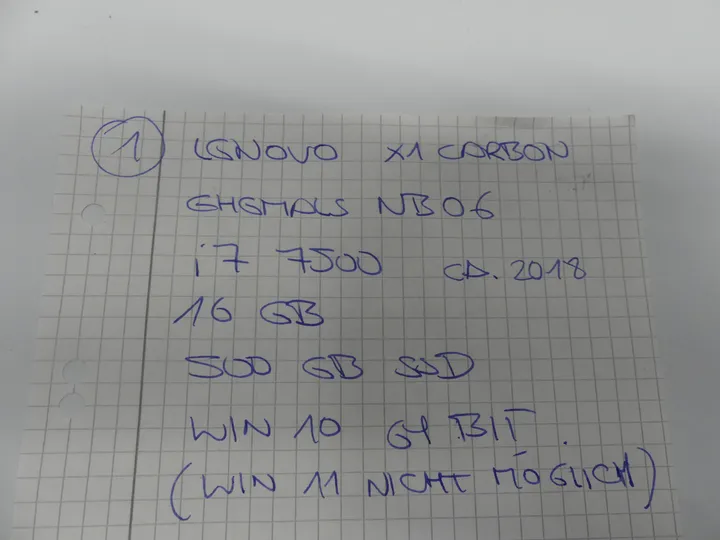 1 LENOVO X1 CARBON
EHEMALS NB06
i7 7500 CA. 2018
16 GB
500 GB SSD
WIN 10 64 BIT
(WIN 11 NICHT MÖGLICH)